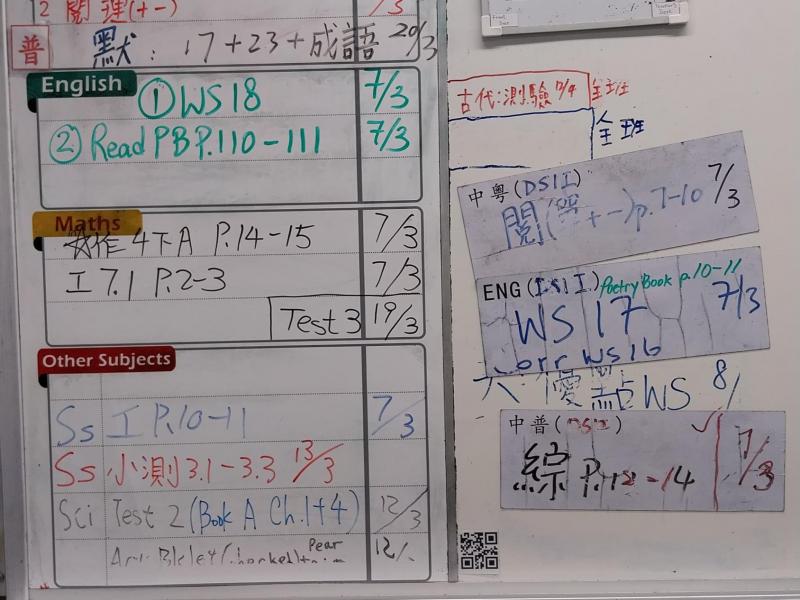 2 閱 理(+-) /3
普 默: 17+23+成語 20/3
English
① WS18 7/3
② Read PB P.110-111 7/3
Maths
作4下A P.14-15 7/3
工7.1 P.2-3 7/3
Test 3 19/3
Other Subjects
Ss 工 P.10-11 7/3
Ss 小測3.1-3.3 13/3
Sci Test 2 (Book A Ch.1+4) 12/3
Pear
12/
古代:測驗 7/4 全班
全班
中粵(DSII)
閱 p.7-10 7/3
ENG Poetry Book p.10-11
WS 17 7/3
corr WS16
優點WS 8/
中普
綜 P.12-14 7/3